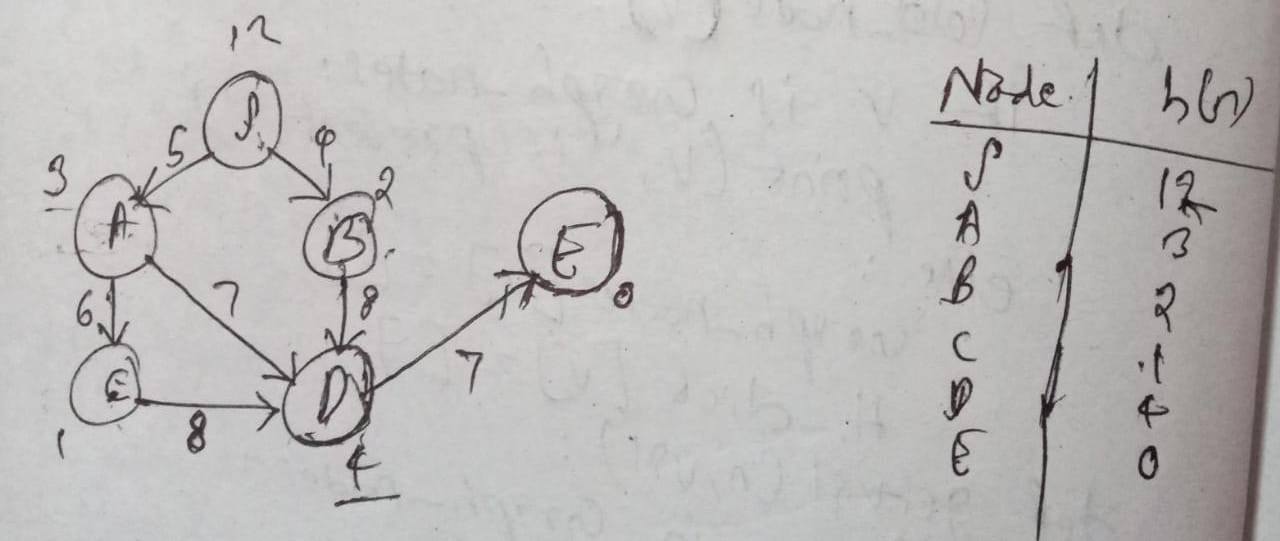 12
S
5 9
3 A B 2
E
0
6 7 8
C D
7
1 8
4
Node h(n)
S 12
A 3
B 2
C 1
D 4
E 0